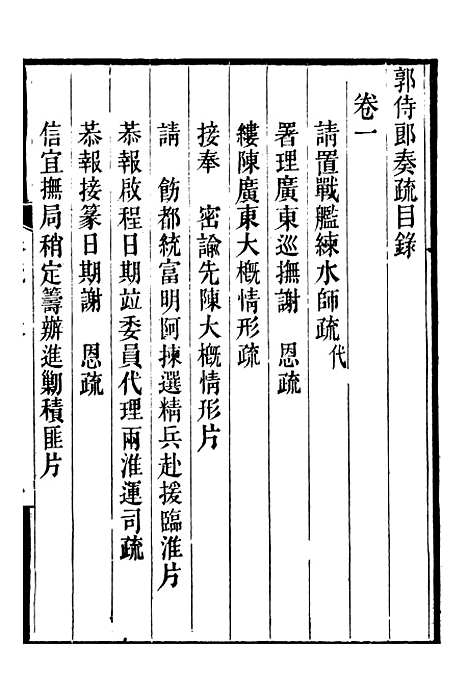 郭侍郎奏疏目錄
卷一
請置戰艦練水師疏代
署理廣東巡撫謝 恩疏
縷陳廣東大概情形疏
接奉 密諭先陳大概情形片
請 飭都統富明阿揀選精兵赴援臨淮片
恭報啟程日期竝委員代理兩淮運司疏
恭報接篆日期謝 恩疏
信宜撫局稍定籌辦進勦積匪片